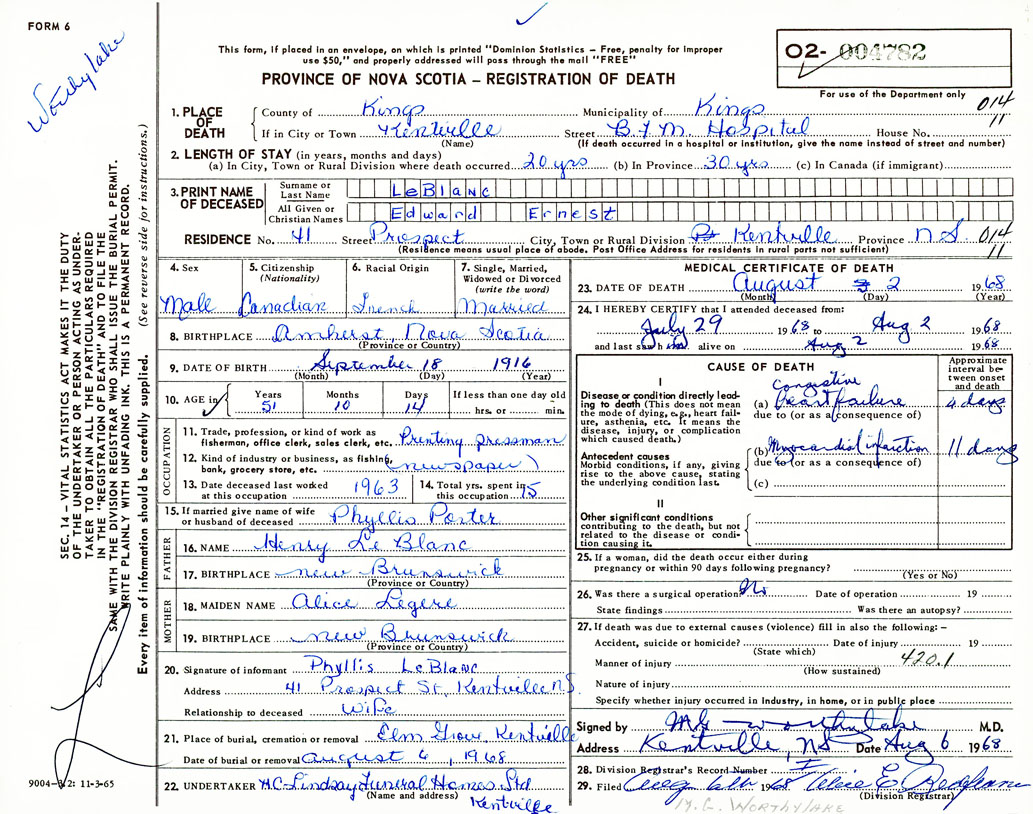 FORM 6
Worthylake
This form, if placed in an envelope, on which is printed "Dominion Statistics – Free, penalty for improper
use $50," and properly addressed will pass through the mail "FREE"
PROVINCE OF NOVA SCOTIA – REGISTRATION OF DEATH
02- 004782
For use of the Department only
014
11
1. PLACE OF DEATH
County of Kings Municipality of Kings
If in City or Town Kentville Street B.F.M. Hospital House No.
(Name) (If death occurred in a hospital or institution, give the name instead of street and number)
2. LENGTH OF STAY (in years, months and days)
(a) In City, Town or Rural Division where death occurred 20 yrs (b) In Province 30 yrs (c) In Canada (if immigrant)
3. PRINT NAME OF DECEASED
Surname or Last Name LeBlanc
All Given or Christian Names Edward Ernest
RESIDENCE No. 41 Street Prospect City, Town or Rural Division Kentville Province N S 014
(Residence means usual place of abode. Post Office Address for residents in rural parts not sufficient) 11
4. Sex Male
5. Citizenship (Nationality) Canadian
6. Racial Origin French
7. Single, Married, Widowed or Divorced (write the word) Married
8. BIRTHPLACE Amherst, Nova Scotia
(Province or Country)
9. DATE OF BIRTH September 18 1916
(Month) (Day) (Year)
10. AGE in Years 51 Months 10 Days 14 If less than one day old hrs. or min.
OCCUPATION
11. Trade, profession, or kind of work as fisherman, office clerk, sales clerk, etc. Printing pressman
12. Kind of industry or business, as fishing, bank, grocery store, etc. (newspaper)
13. Date deceased last worked at this occupation 1963
14. Total yrs. spent in this occupation 15
15. If married give name of wife or husband of deceased Phyllis Porter
FATHER
16. NAME Henry Le Blanc
17. BIRTHPLACE New Brunswick
(Province or Country)
MOTHER
18. MAIDEN NAME Alice Legere
19. BIRTHPLACE New Brunswick
(Province or Country)
20. Signature of informant Phyllis LeBlanc
Address 41 Prospect St. Kentville N.S.
Relationship to deceased Wife
21. Place of burial, cremation or removal Elm Grove Kentville
Date of burial or removal August 6, 1968
22. UNDERTAKER H.C. Lindsay Funeral Homes Ltd
(Name and address) Kentville
MEDICAL CERTIFICATE OF DEATH
23. DATE OF DEATH August 2 1968
(Month) (Day) (Year)
24. I HEREBY CERTIFY that I attended deceased from:
July 29 1968 to Aug 2 1968
and last saw him alive on Aug 2 1968
CAUSE OF DEATH
Approximate interval between onset and death
I
Disease or condition directly leading to death (This does not mean the mode of dying, e.g., heart failure, asthenia, etc. It means the disease, injury, or complication which caused death.)
(a) Congestive heart failure 4 days
due to (or as a consequence of)
Antecedent causes
Morbid conditions, if any, giving rise to the above cause, stating the underlying condition last.
(b) Myocardial infarction 11 days
due to (or as a consequence of)
(c)
II
Other significant conditions
contributing to the death, but not related to the disease or condition causing it.
25. If a woman, did the death occur either during
pregnancy or within 90 days following pregnancy?
(Yes or No)
26. Was there a surgical operation No Date of operation 19
State findings Was there an autopsy?
27. If death was due to external causes (violence) fill in also the following: –
Accident, suicide or homicide? Date of injury 19
(State which) 420.1
Manner of injury
(How sustained)
Nature of injury
Specify whether injury occurred in Industry, in home, or in public place
Signed by Worthylake M.D.
Address Kentville, NS Date Aug 6 1968
28. Division Registrar's Record Number
29. Filed Aug 6th 1968 Alice E.
(Division Registrar)
M. C. WORTHYLAKE
SEC. 14 – VITAL STATISTICS ACT MAKES IT THE DUTY
OF THE UNDERTAKER OR PERSON ACTING AS UNDER-
TAKER TO OBTAIN ALL THE PARTICULARS REQUIRED
IN THE "REGISTRATION OF DEATH" AND TO FILE THE
SAME WITH THE DIVISION REGISTRAR WHO SHALL ISSUE THE BURIAL PERMIT.
WRITE PLAINLY WITH UNFADING INK. THIS IS A PERMANENT RECORD.
Every item of information should be carefully supplied. (See reverse side for instructions.)
9004-2: 11-3-65